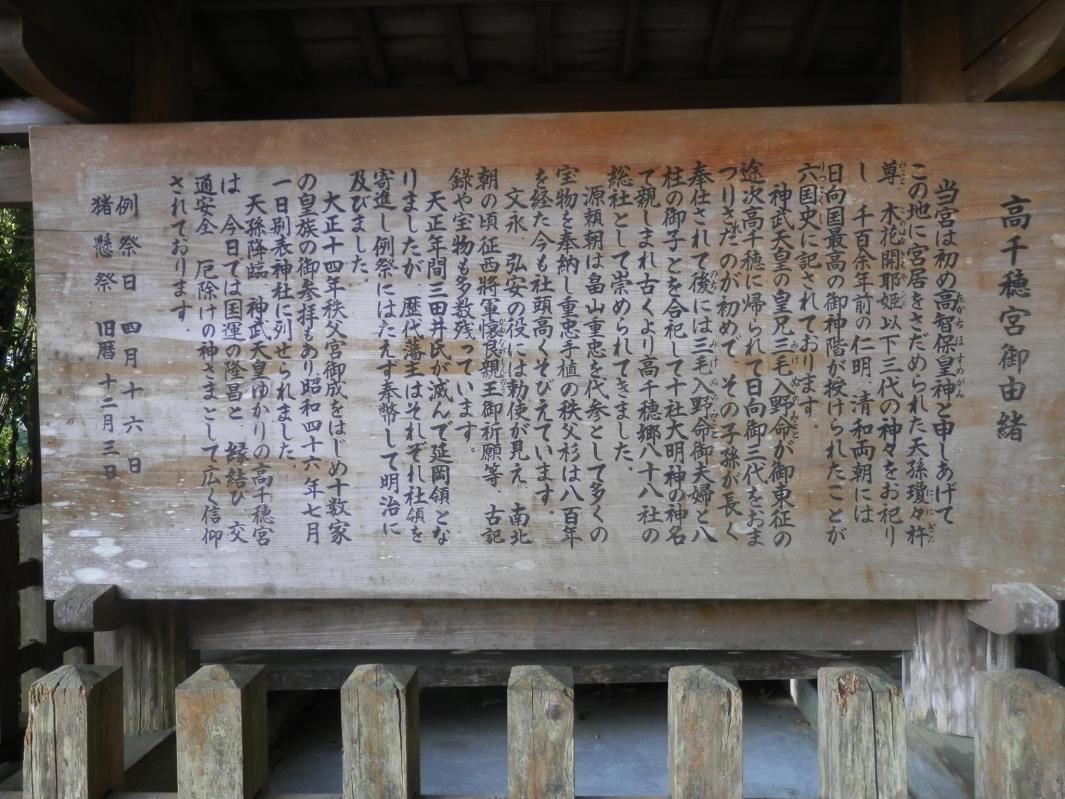 高千穂宮御由緒
当宮は初め高智保皇神と申しあげて
この地に宮居をさだめられた天孫瓊々杵
尊、木花開耶姫以下三代の神々をお祀り
し、千百余年前の仁明、清和両朝には
日向国最高の御神階が授けられたことが
六国史に記されております。
神武天皇の皇兄三毛入野命が御東征の
途次高千穂に帰られて日向御三代をおま
つりさだのが初めで、その子孫が長く
奉仕されて後には三毛入野命御夫婦と八
柱の御子とを合祀して十社大明神の神名
で親しまれ古くより高千穂郷八十八社の
総社として崇められてきました。
源頼朝は畠山重忠を代参として多くの
宝物を奉納し重忠手植の秩父杉は八百年
を経た今も社頭高くそびえています。
文永、弘安の役には勅使が見え、南北
朝の頃征西将軍懐良親王御祈願等、古記
録や宝物も多数残っています。
天正年間三田井氏が滅んで延岡領とな
りましたが、歴代藩主はそれぞれ社領を
寄進し例祭にはたえず奉幣して明治に
及びました。
大正十四年秩父宮御成をはじめ十数家
の皇族の御参拝もあり昭和四十六年七月
一日別表神社に列せられました。
天孫降臨、神武天皇ゆかりの高千穂宮
は、今日では国運の隆昌と、縁結び、交
通安全、厄除けの神さまとして広く信仰
されております。
例祭日 四月十六日
猪懸祭 旧暦十二月三日